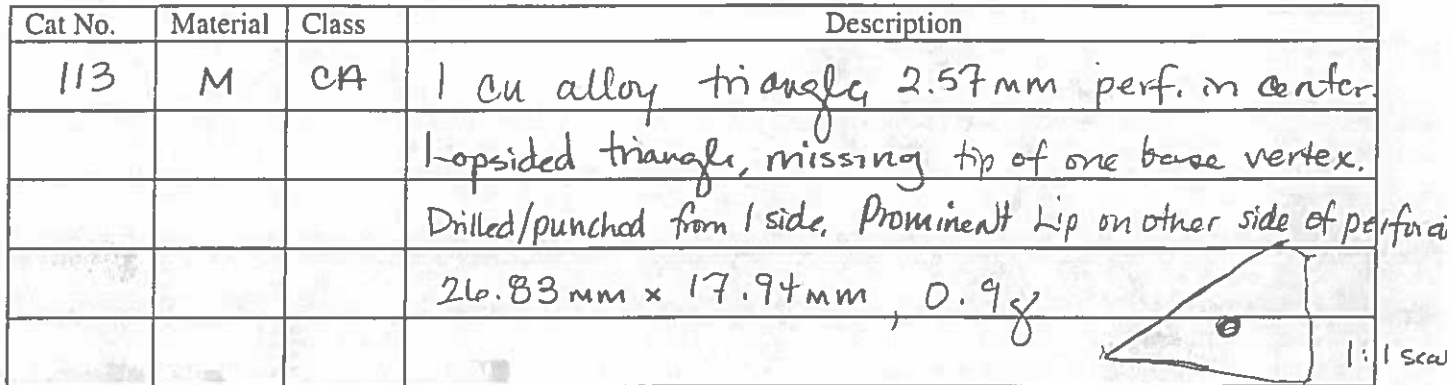 Cat No. Material Class Description
113 M CA 1 cu alloy triangle, 2.57mm perf. in center.
Lopsided triangle, missing tip of one base vertex.
Drilled/punched from 1 side. Prominent Lip on other side of perfora
26.83mm x 17.94mm, 0.9g
1:1 scal